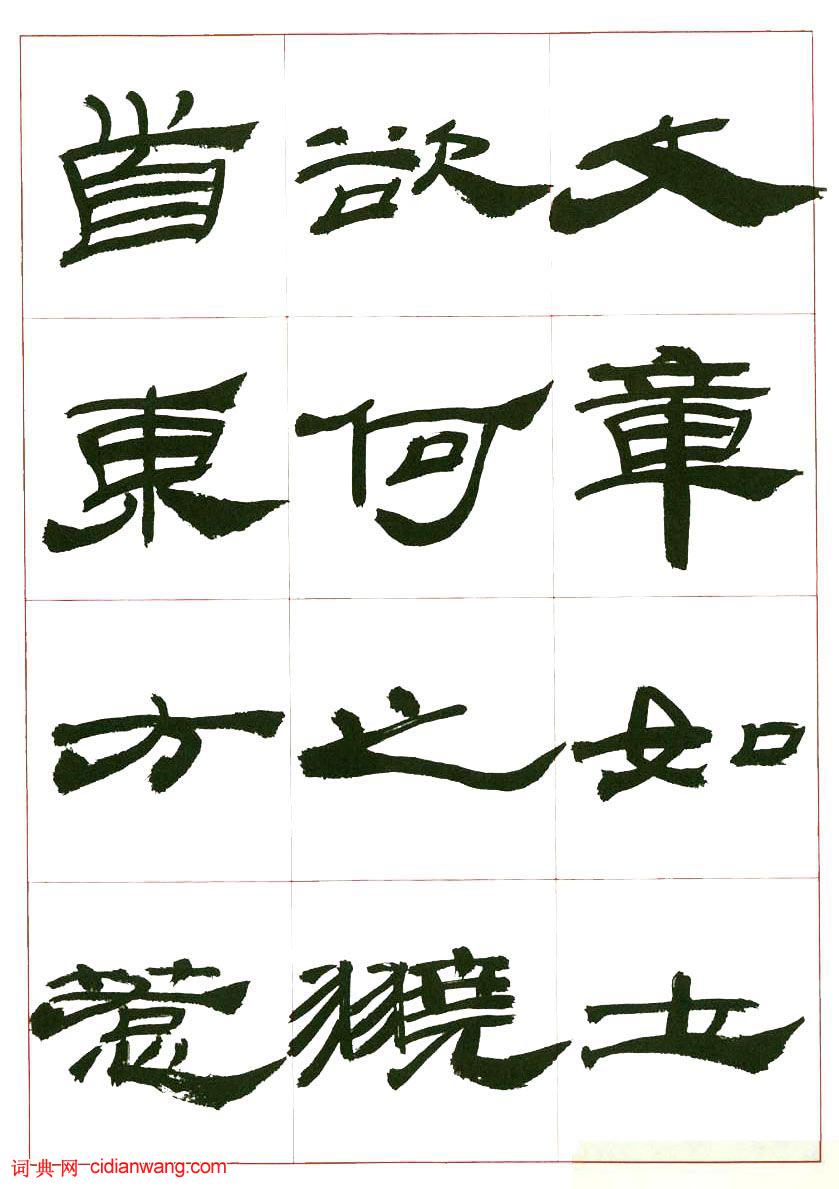 文章如土
欲何之翹
首東方惹
词典网-cidianwang.com